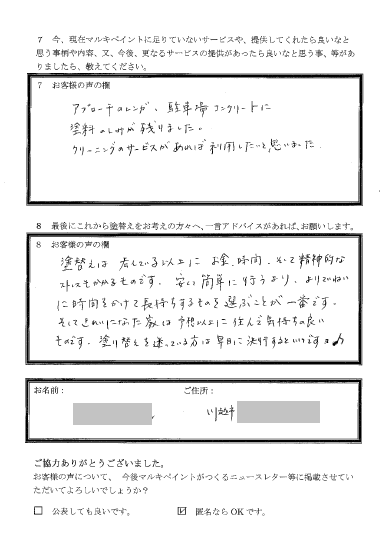 7 今、現在マルキペイントに足りていないサービスや、提供してくれたら良いなと
思う事柄や内容、又、今後、更なるサービスの提供があったら良いなと思う事、等があ
りましたら、教えてください。
7 お客様の声の欄
アプローチのレンガ、駐車場コンクリートに
塗料のしみが残りました。
クリーニングのサービスがあれば利用したいと思いました。
8 最後にこれから塗替えをお考えの方々へ、一言アドバイスがあれば、お願いします。
8 お客様の声の欄
塗替えは 考えている以上に お金、時間、そして精神的な
ストレスもかかるものです。安く簡単に行うより、よりていねい
に時間をかけて長持ちするものを選ぶことが一番です。
そしてきれいになった家は予想以上に住んで気持ちの良い
ものです。塗り替えを迷っている方は早目に決行するといいですョ♪
お名前: ご住所:
川越市
ご協力ありがとうございました。
お客様の声について、今後マルキペイントがつくるニュースレター等に掲載させてい
ただいてよろしいでしょうか?
□ 公表しても良いです。 ☑ 匿名ならOKです。